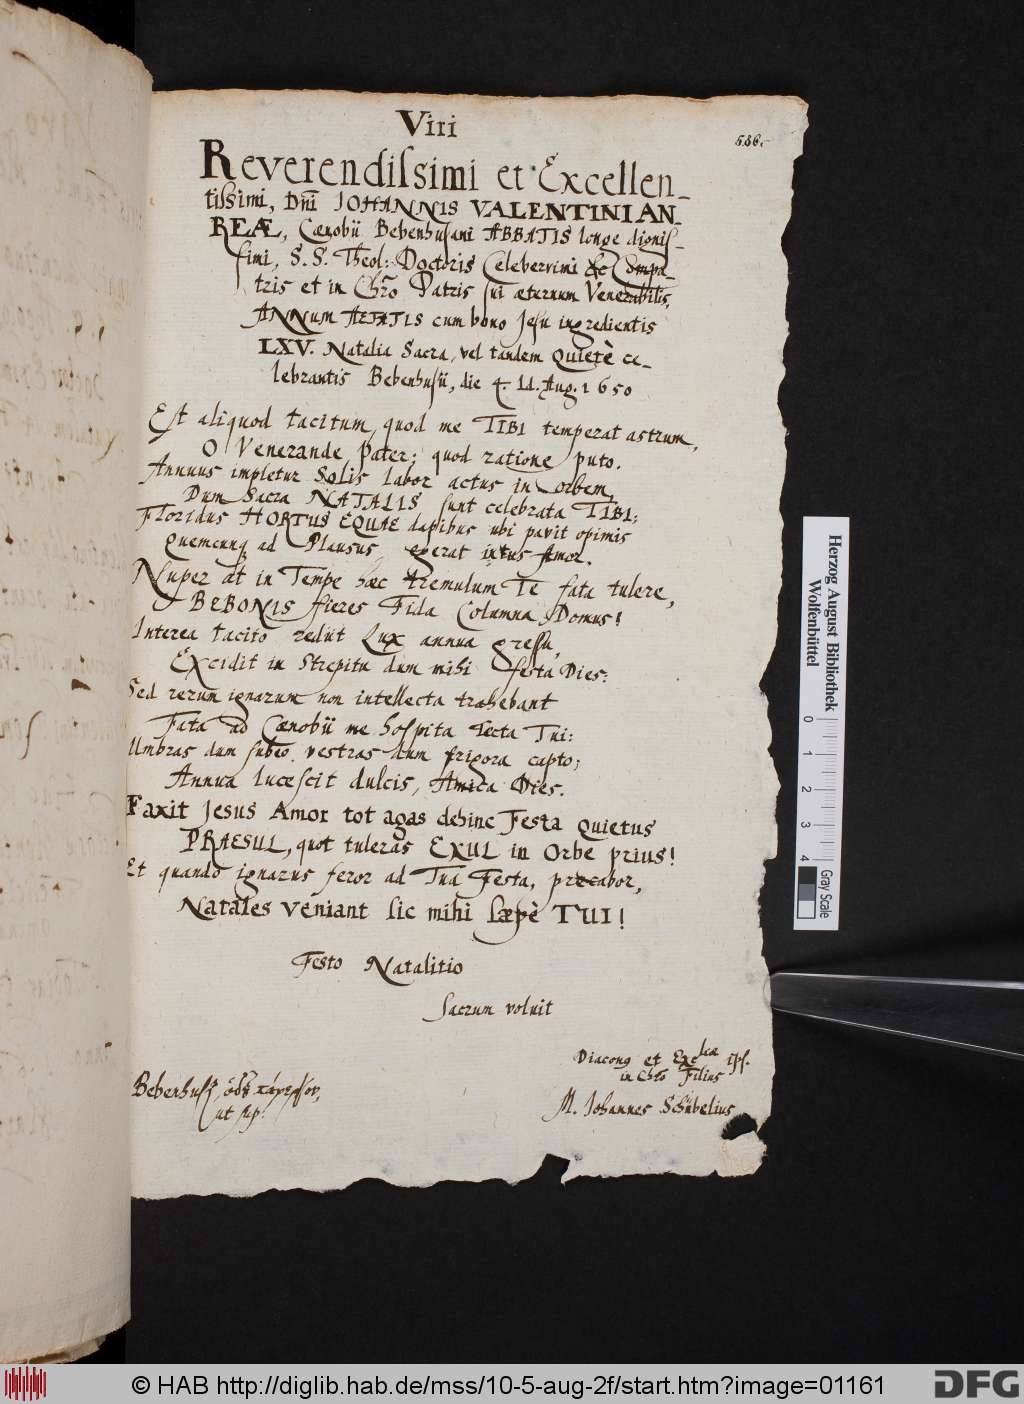 Viri
586.
Reverendissimi et Excellen-
tissimi, Dñi IOHANNIS VALENTINI AN-
REÆ, Cœnobii Bebenhusani ABBATIS longe dignis-
simi, S. S. Theol: Doctoris Celeberrimi &c Compa-
tris et in Chro Patris sui æternum Venerabilis,
ANNum AETATIS cum bono Jesu ingredientis
LXV. Natalia Sacra, vel tandem Quietè ce-
lebrantis Bebenhusii, die Aug. 1650
Est aliquod tacitum, quod me TIBI temperat astrum,
O Venerande Pater; quod ratione puto.
Annuus impletur Solis labor actus in orbem,
Dum Sacra NATALIS sunt celebrata TIBI;
Floridus HORTUS EQUAE dapibus ubi pavit opimis
Quemcunq ad Plausus, egerat intus Amor.
Nuper at in Tempe hæc tremulum Te fata tulere,
BEBONIS fieres Fida Columna Domus!
Interea tacito rediit Lux annua gressu,
Excidit in strepitu dum mihi festa Dies:
Sed rerum ignarum non intellecta trahebant
Fata ad Cœnobii me hospita tecta Tui:
Umbras dum subeo vestras dum frigora capto;
Annua lucescit dulcis, Amica Dies.
Faxit Jesus Amor tot agas dehinc Festa Quietus
PRAESUL, quot tuleras EXUL in Orbe prius!
Et quando ignarus feror ad Tua Festa, precabor,
Natales veniant sic mihi sæpè TUI!
Festo Natalitio
sacrum voluit
Diacong et Exc
in Chro Filius
M. Iohannes Schübelius
ut sup.
Herzog August Bibliothek
Wolfenbüttel
0 1 2 3 4
Gray Scale
© HAB http://diglib.hab.de/mss/10-5-aug-2f/start.htm?image=01161
DFG